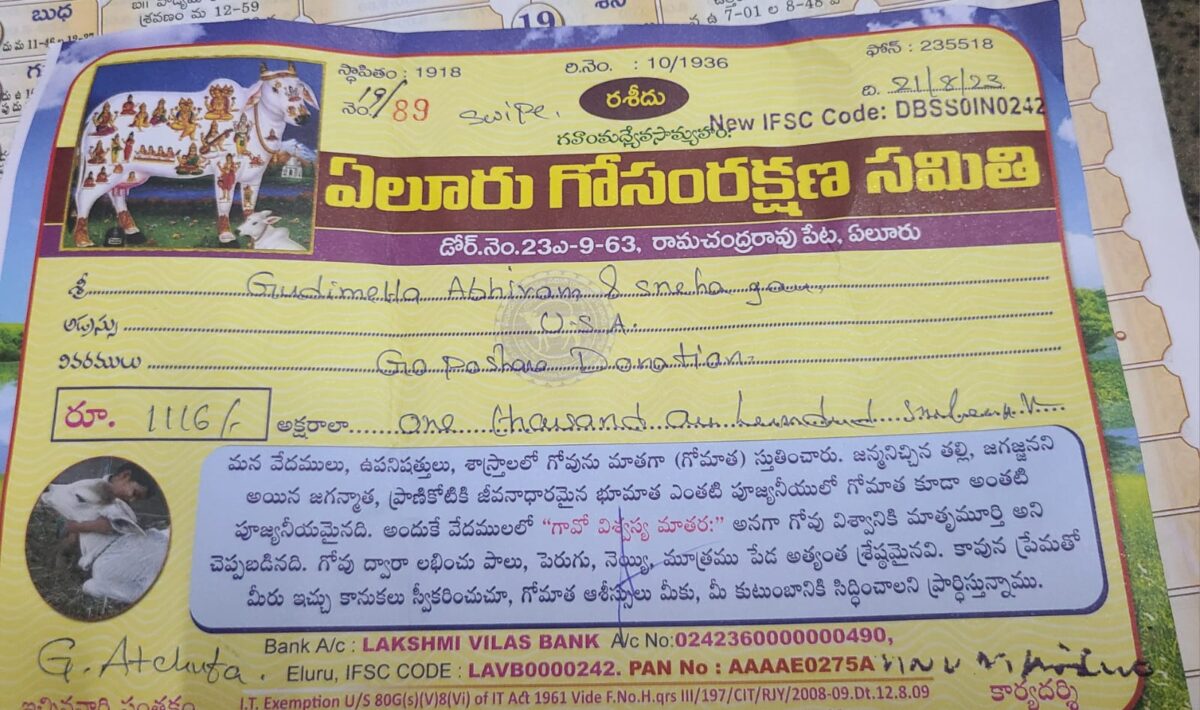 బుధ
శ్రవణం మ 12-59
19
శని
ఉ 7-01 ల 8-48
స్థాపితం : 1918
రి.నెం. : 10/1936
ఫోన్ : 235518
నెం. 19/89
swipe.
రశీదు
ది. 21/8/23
New IFSC Code: DBSS0IN0242
గవాంమధ్యేవసామ్యహం:
ఏలూరు గోసంరక్షణ సమితి
డోర్.నెం.23ఎ-9-63, రామచంద్రరావు పేట, ఏలూరు
శ్రీ Gudimella Abhiram & sneha
అడ్రస్సు U.S.A.
వివరములు Go poshan Donation
రూ. 1116/-
అక్షరాలా one thousand
మన వేదములు, ఉపనిషత్తులు, శాస్త్రాలలో గోవును మాతగా (గోమాత) స్తుతించారు. జన్మనిచ్చిన తల్లి, జగజ్జనని
అయిన జగన్మాత, ప్రాణికోటికి జీవనాధారమైన భూమాత ఎంతటి పూజ్యనీయులో గోమాత కూడా అంతటి
పూజ్యనీయమైనది. అందుకే వేదములలో “గావో విశ్వస్య మాతర:” అనగా గోవు విశ్వానికి మాతృమూర్తి అని
చెప్పబడినది. గోవు ద్వారా లభించు పాలు, పెరుగు, నెయ్యి, మూత్రము పేడ అత్యంత శ్రేష్ఠమైనవి. కావున ప్రేమతో
మీరు ఇచ్చు కానుకలు స్వీకరించుచూ, గోమాత ఆశీస్సులు మీకు, మీ కుటుంబానికి సిద్ధించాలని ప్రార్థిస్తున్నాము.
G. Atchuta.
Bank A/c : LAKSHMI VILAS BANK A/c No:0242360000000490,
Eluru, IFSC CODE : LAVB0000242. PAN No : AAAAE0275A
I.T. Exemption U/S 80G(s)(V)8(Vi) of IT Act 1961 Vide F.No.H.qrs III/197/CIT/RJY/2008-09.Dt.12.8.09
ఇచ్చినవారి సంతకం
కార్యదర్శి